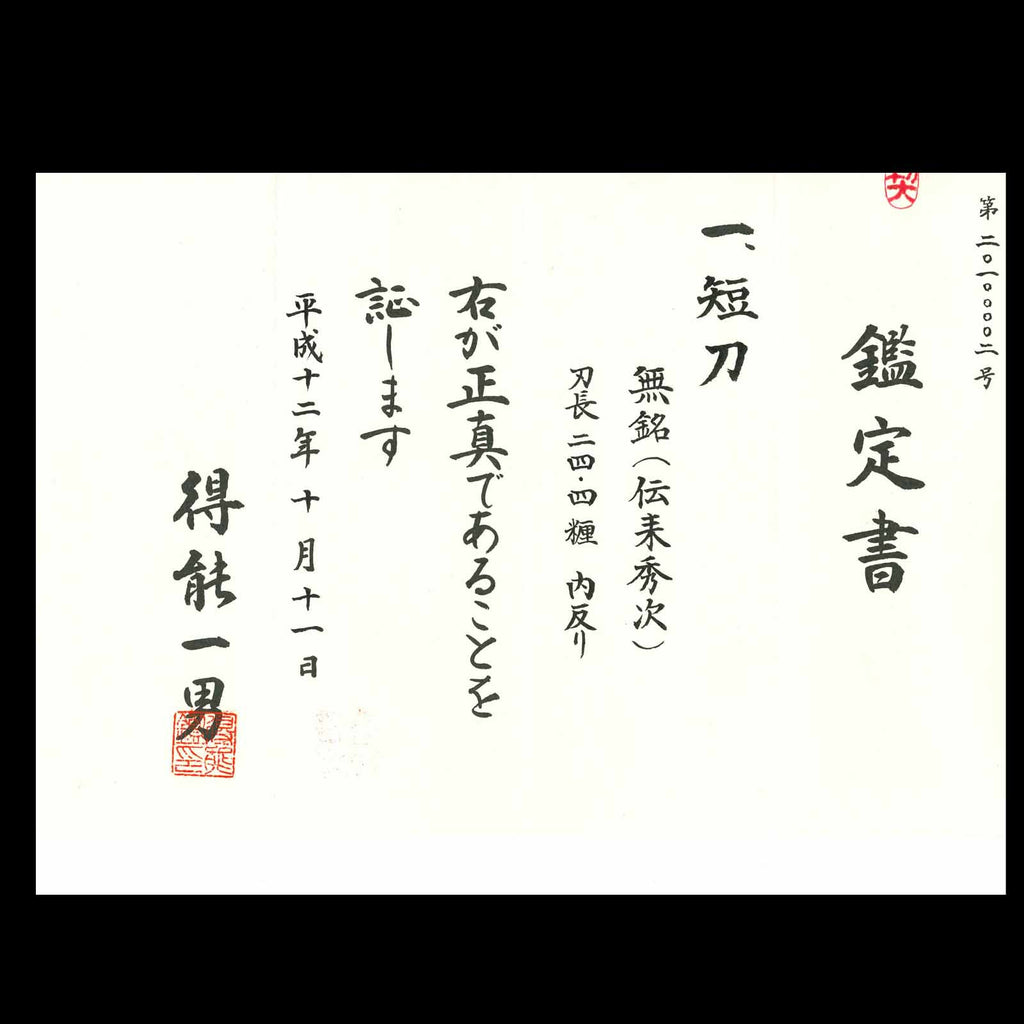 第二〇一〇〇〇〇二号
鑑定書
一、短刀
無銘(伝来秀次)
刃長二四・四糎 内反り
右が正真であることを
証します
平成十二年 十月十一日
得能一男